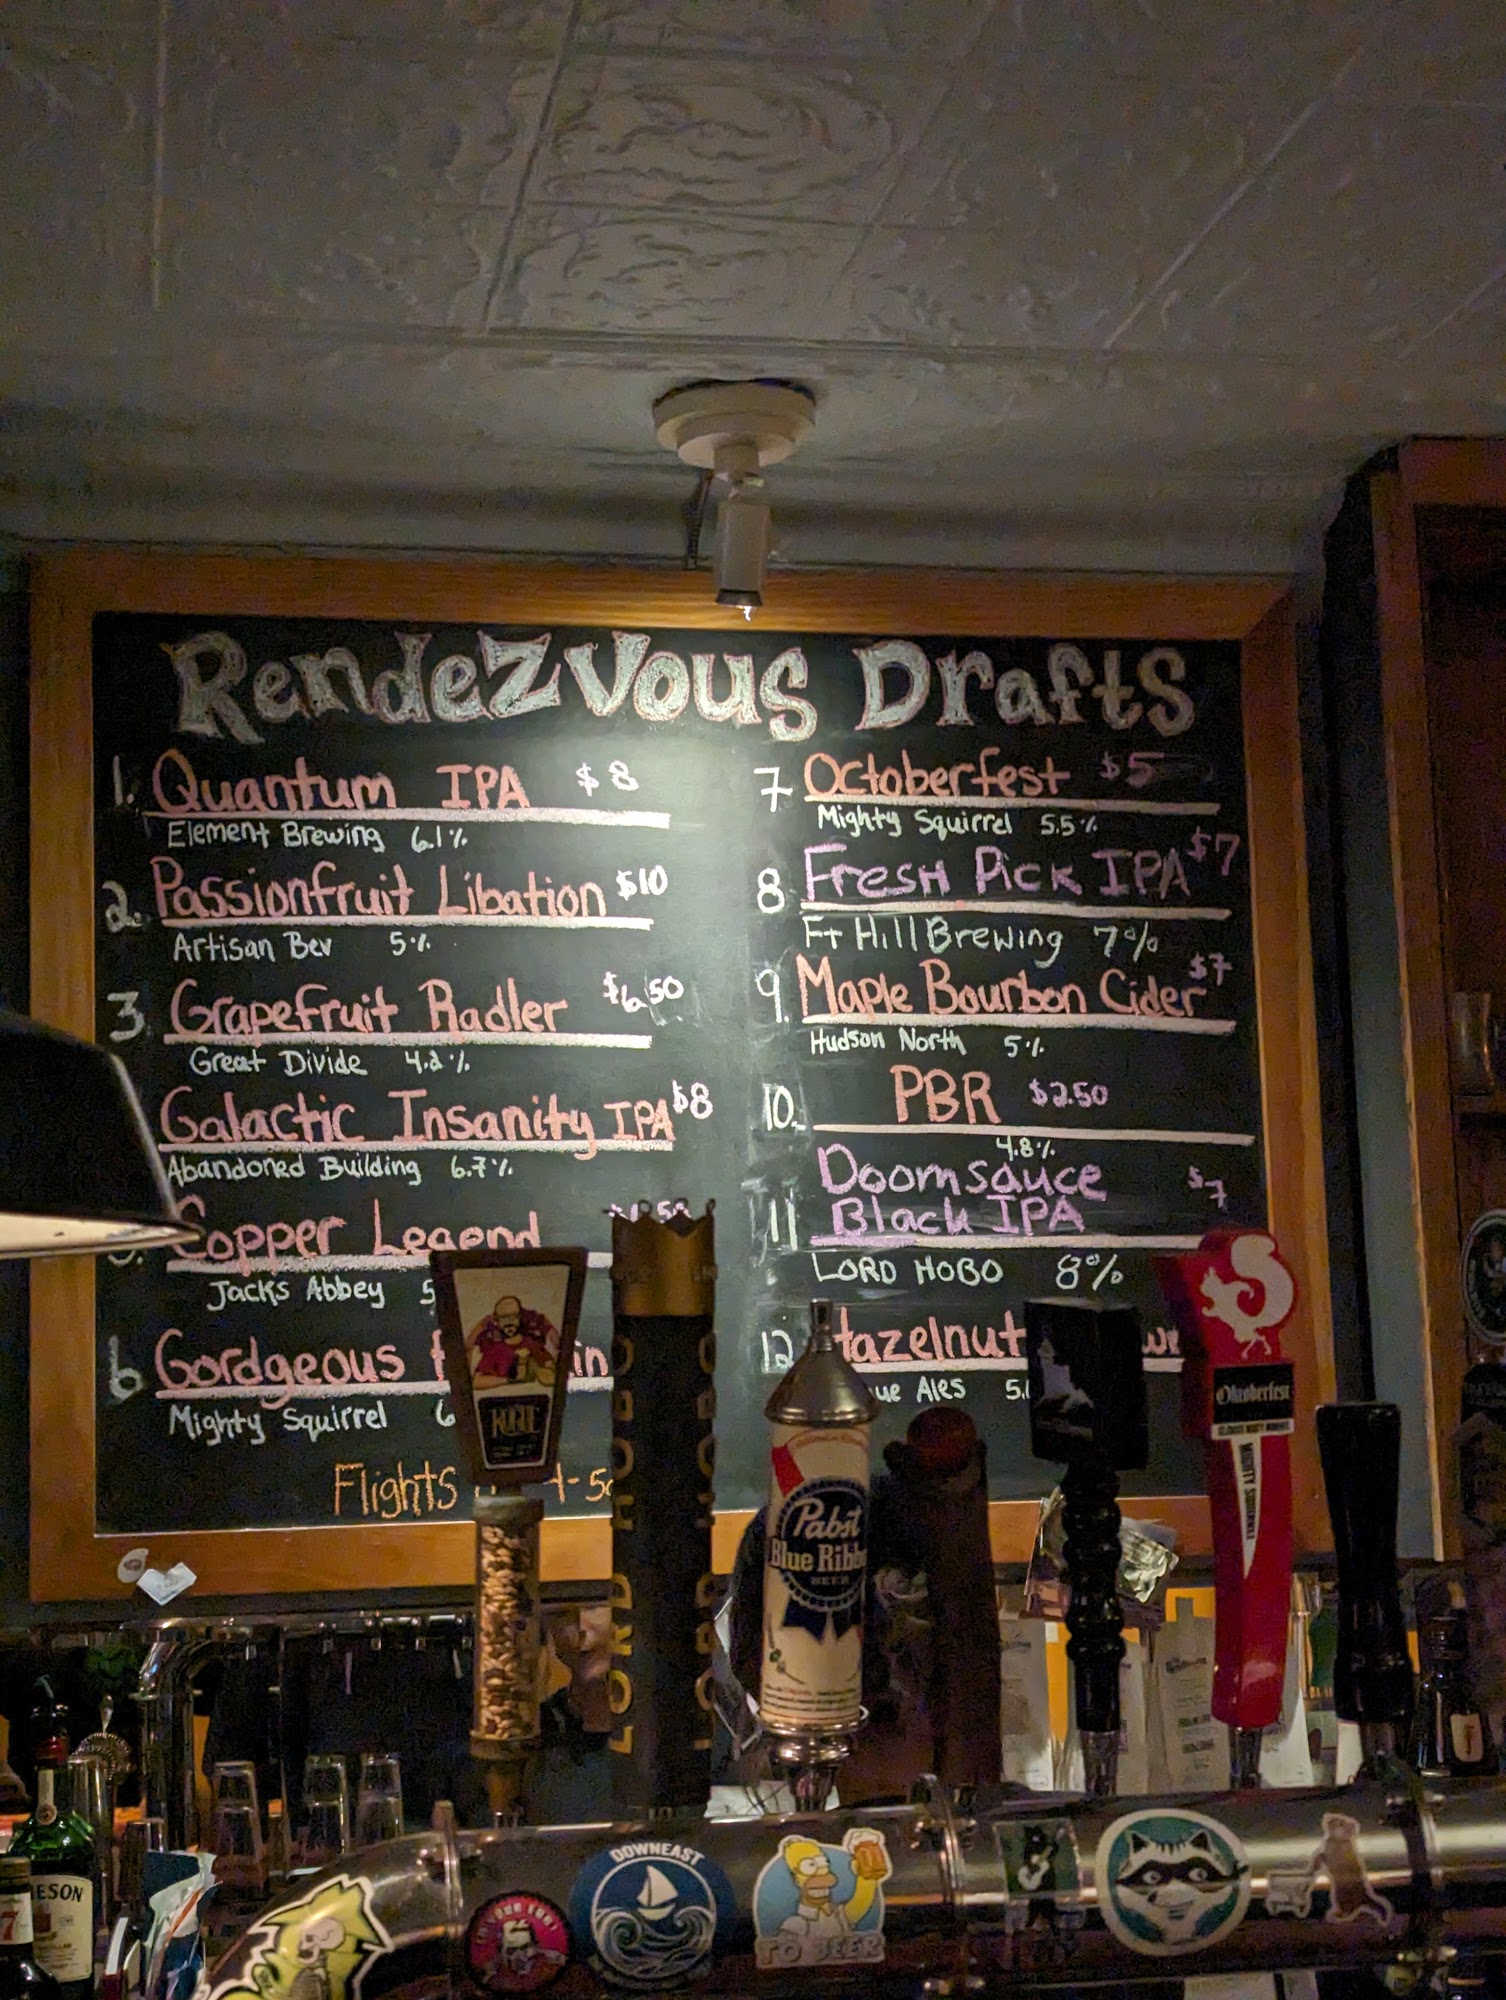 Rendezvous Drafts
1. Quantum IPA $8
Element Brewing 6.1%
2. Passionfruit Libation $10
Artisan Bev 5%
3. Grapefruit Radler $6.50
Great Divide 4.2%
Galactic Insanity IPA $8
Abandoned Building 6.7%
Copper Legend
Jacks Abbey 5
6 Gordgeous
Mighty Squirrel 6
Flights
7 Octoberfest $5
Mighty Squirrel 5.5%
8 Fresh Pick IPA $7
Ft Hill Brewing 7%
9. Maple Bourbon Cider $7
Hudson North 5%
10. PBR $2.50
4.8%
11 Doomsauce $7
Black IPA
LORD HOBO 8%
12 Hazelnut
ue Ales 5.
LORD HOBO
Pabst
Blue Ribbo
BEER
Oktoberfest
MIGHTY SQUIRREL
MESON
7
DOWNEAST
TO BEER